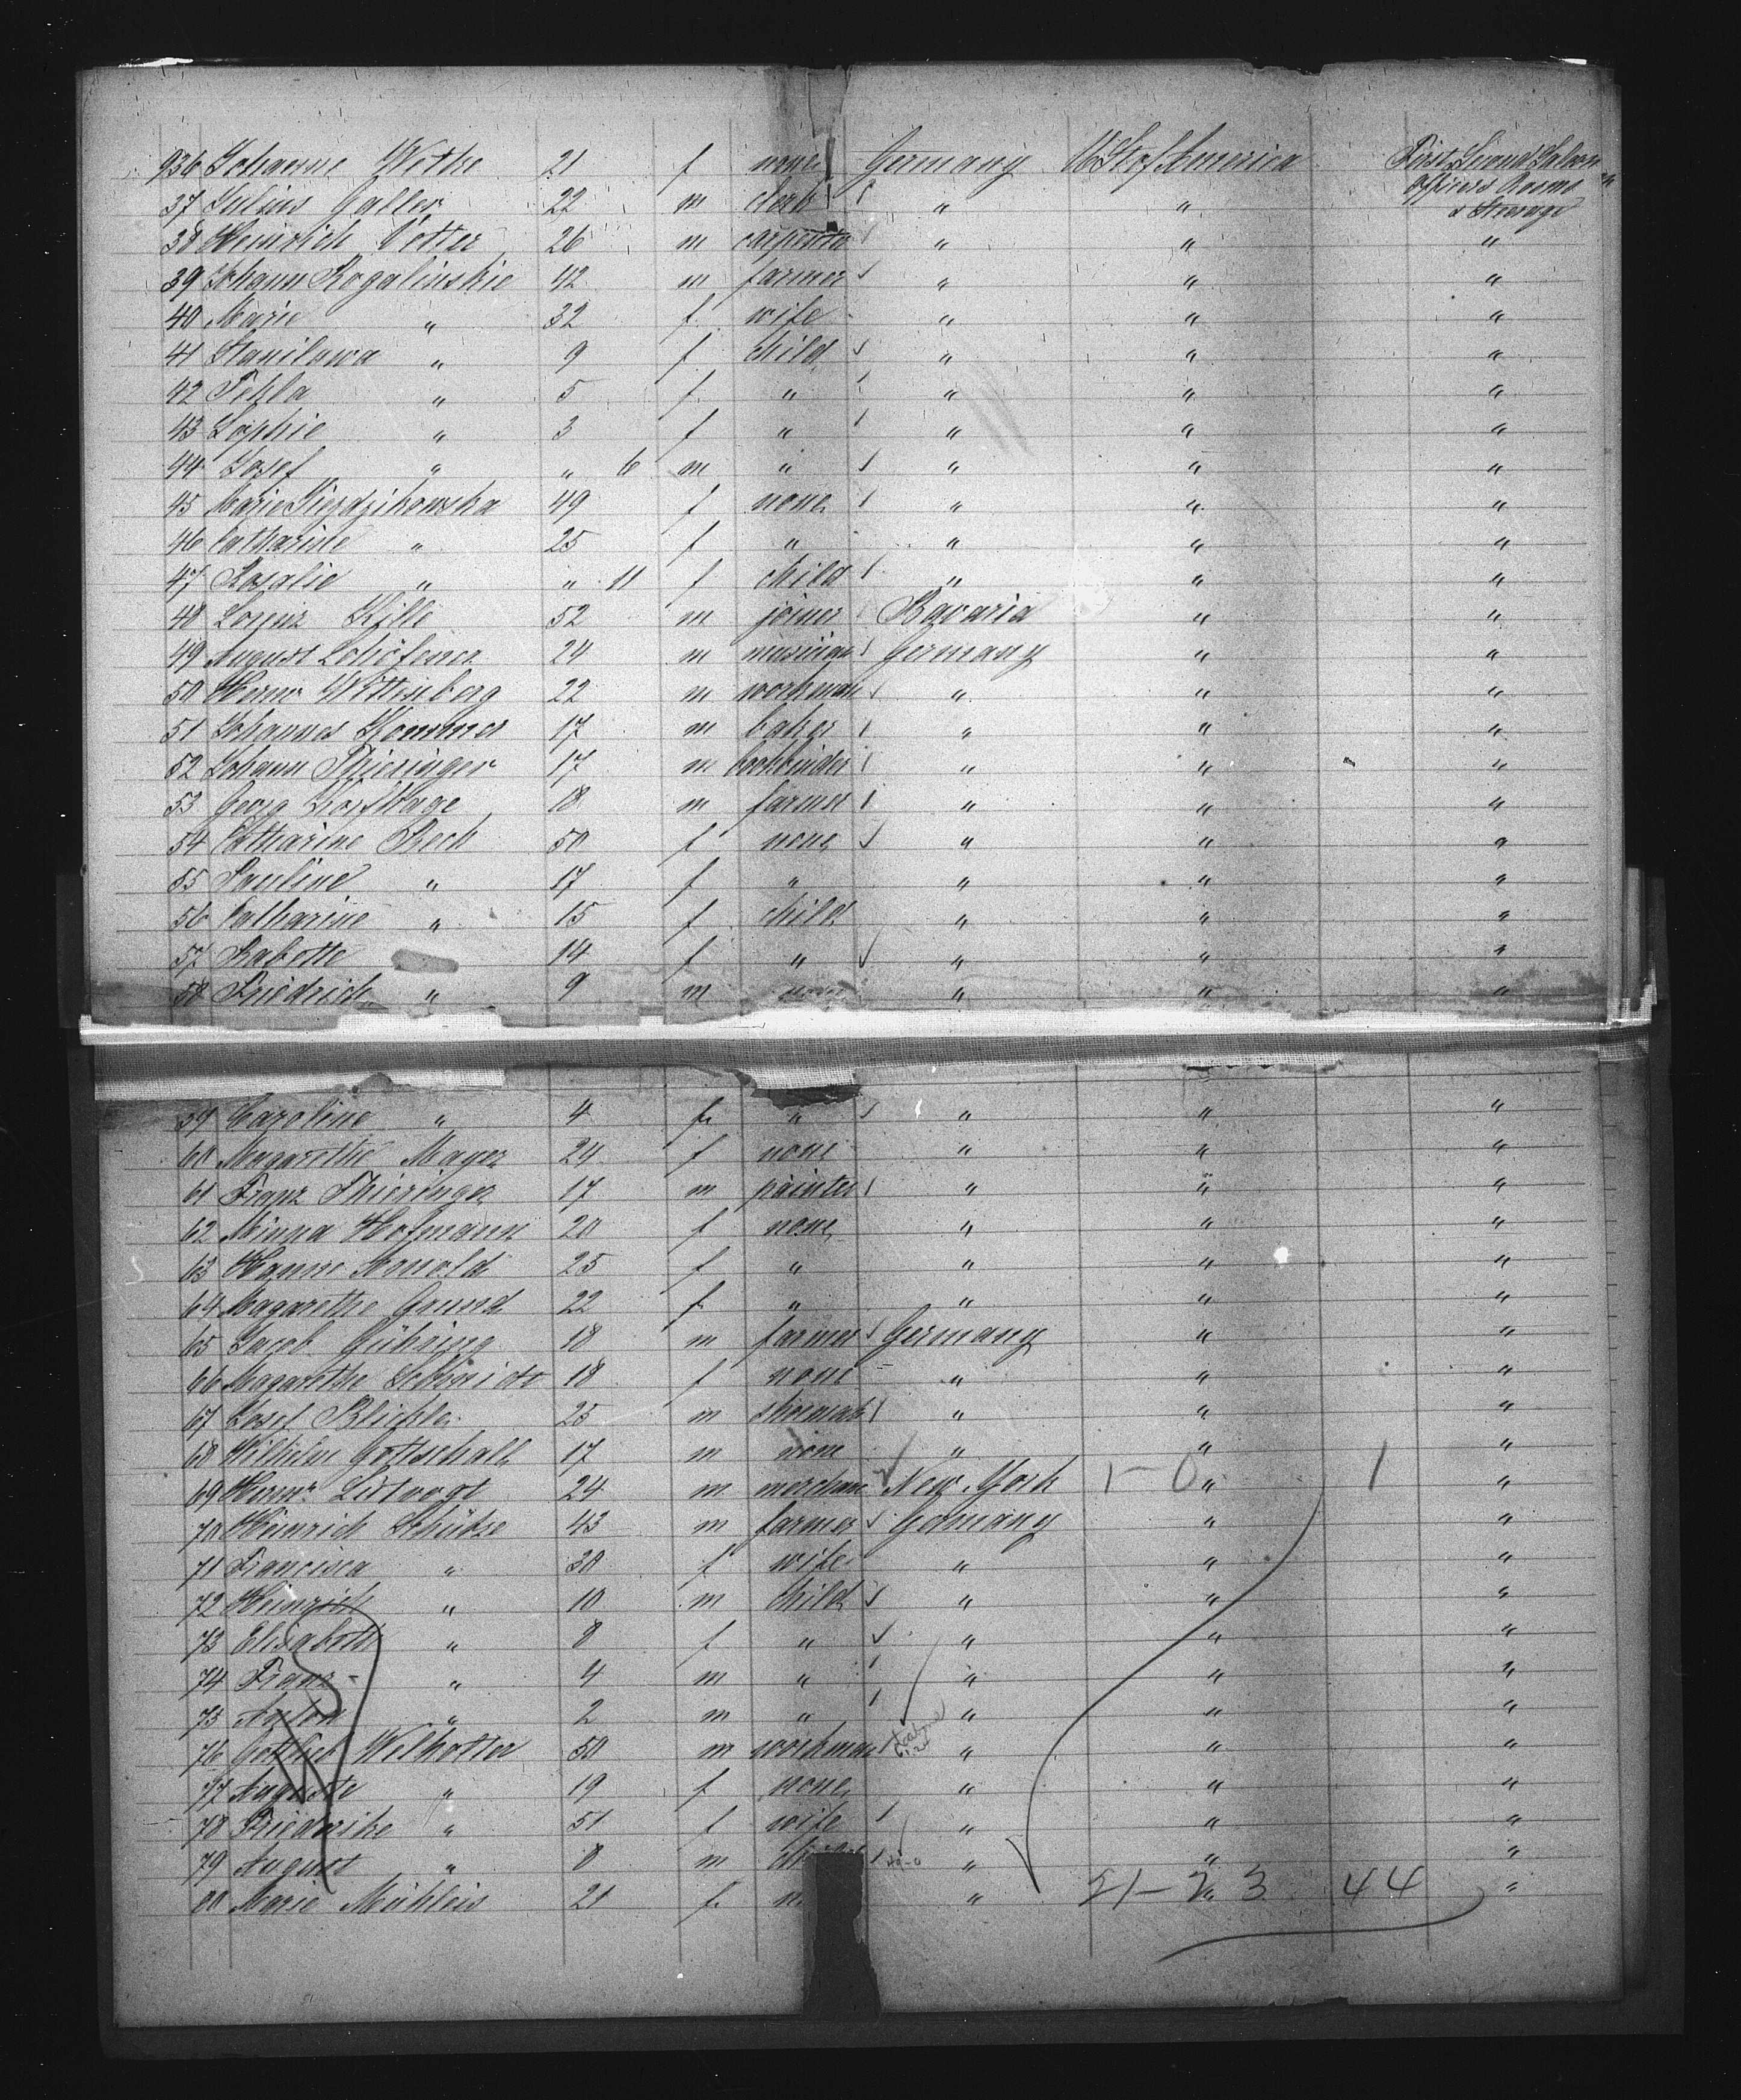 936 Johanne Wethe 21 f none Germany U St of America First, Second Saloon
37 Julius Galler 22 m clerk " " Officers Rooms & Steerage
38 Heinrich Vetter 26 m carpenter " " "
39 Johann Rogalinskie 42 m farmer " " "
40 Marie " 32 f wife " " "
41 Stanilawa " 9 f child " " "
42 Tekla " 5 f " " " "
43 Sophie " 3 f " " " "
44 Josef " " 6 m " " " "
45 Marie 49 f none " " "
46 Catharine " 25 f " " " "
47 Rosalie " " 11 f child " " "
48 Lorenz Kille 52 m joiner Bavaria " "
49 August 24 m Germany " "
50 Herm. Wittenberg 22 m workman " " "
51 Johannes Kommer 17 m baker " " "
52 Johann Thieringer 17 m bookbinder " " "
53 Georg 18 m farmer " " "
54 Catharine Beck 50 f none " " "
55 Pauline " 17 f " " " "
56 Catharine " 15 f child " " "
57 Babette 14 f " " " "
58 Friedrich " 9 m " " "
59 Caroline " 4 f " " " "
60 Magarethe Mayer 24 f none " " "
61 Franz Thieringer 17 m painter " " "
62 Minna Hofmann 20 f none " " "
63 Hanne Arnold 25 f " " " "
64 Magarethe Grund 22 f " " " "
65 Jacob Gühring 18 m farmer Germany " "
66 Magarethe Schmidt 18 f none " " "
67 Josef 25 m shoemak " " "
68 Wilhelm Gottschalk 17 m none " " "
69 Herm. 24 m merchant New York 1-0 " 1 "
70 Heinrich Schütze 43 m farmer Germany " "
71 Francisca " 30 f wife " " "
72 Heinrich " 10 m child " " "
73 Elisabeth " 8 f " " " "
74 Franz " 4 m " " " "
75 Anton " 2 m " " " "
76 Gottlieb Welhotter 50 m workman " " "
77 Auguste " 19 f none " " "
78 Friederike " 51 f wife " " "
79 August " 8 m " " "
80 Marie Mühleis 21 f " 21-23 44 "